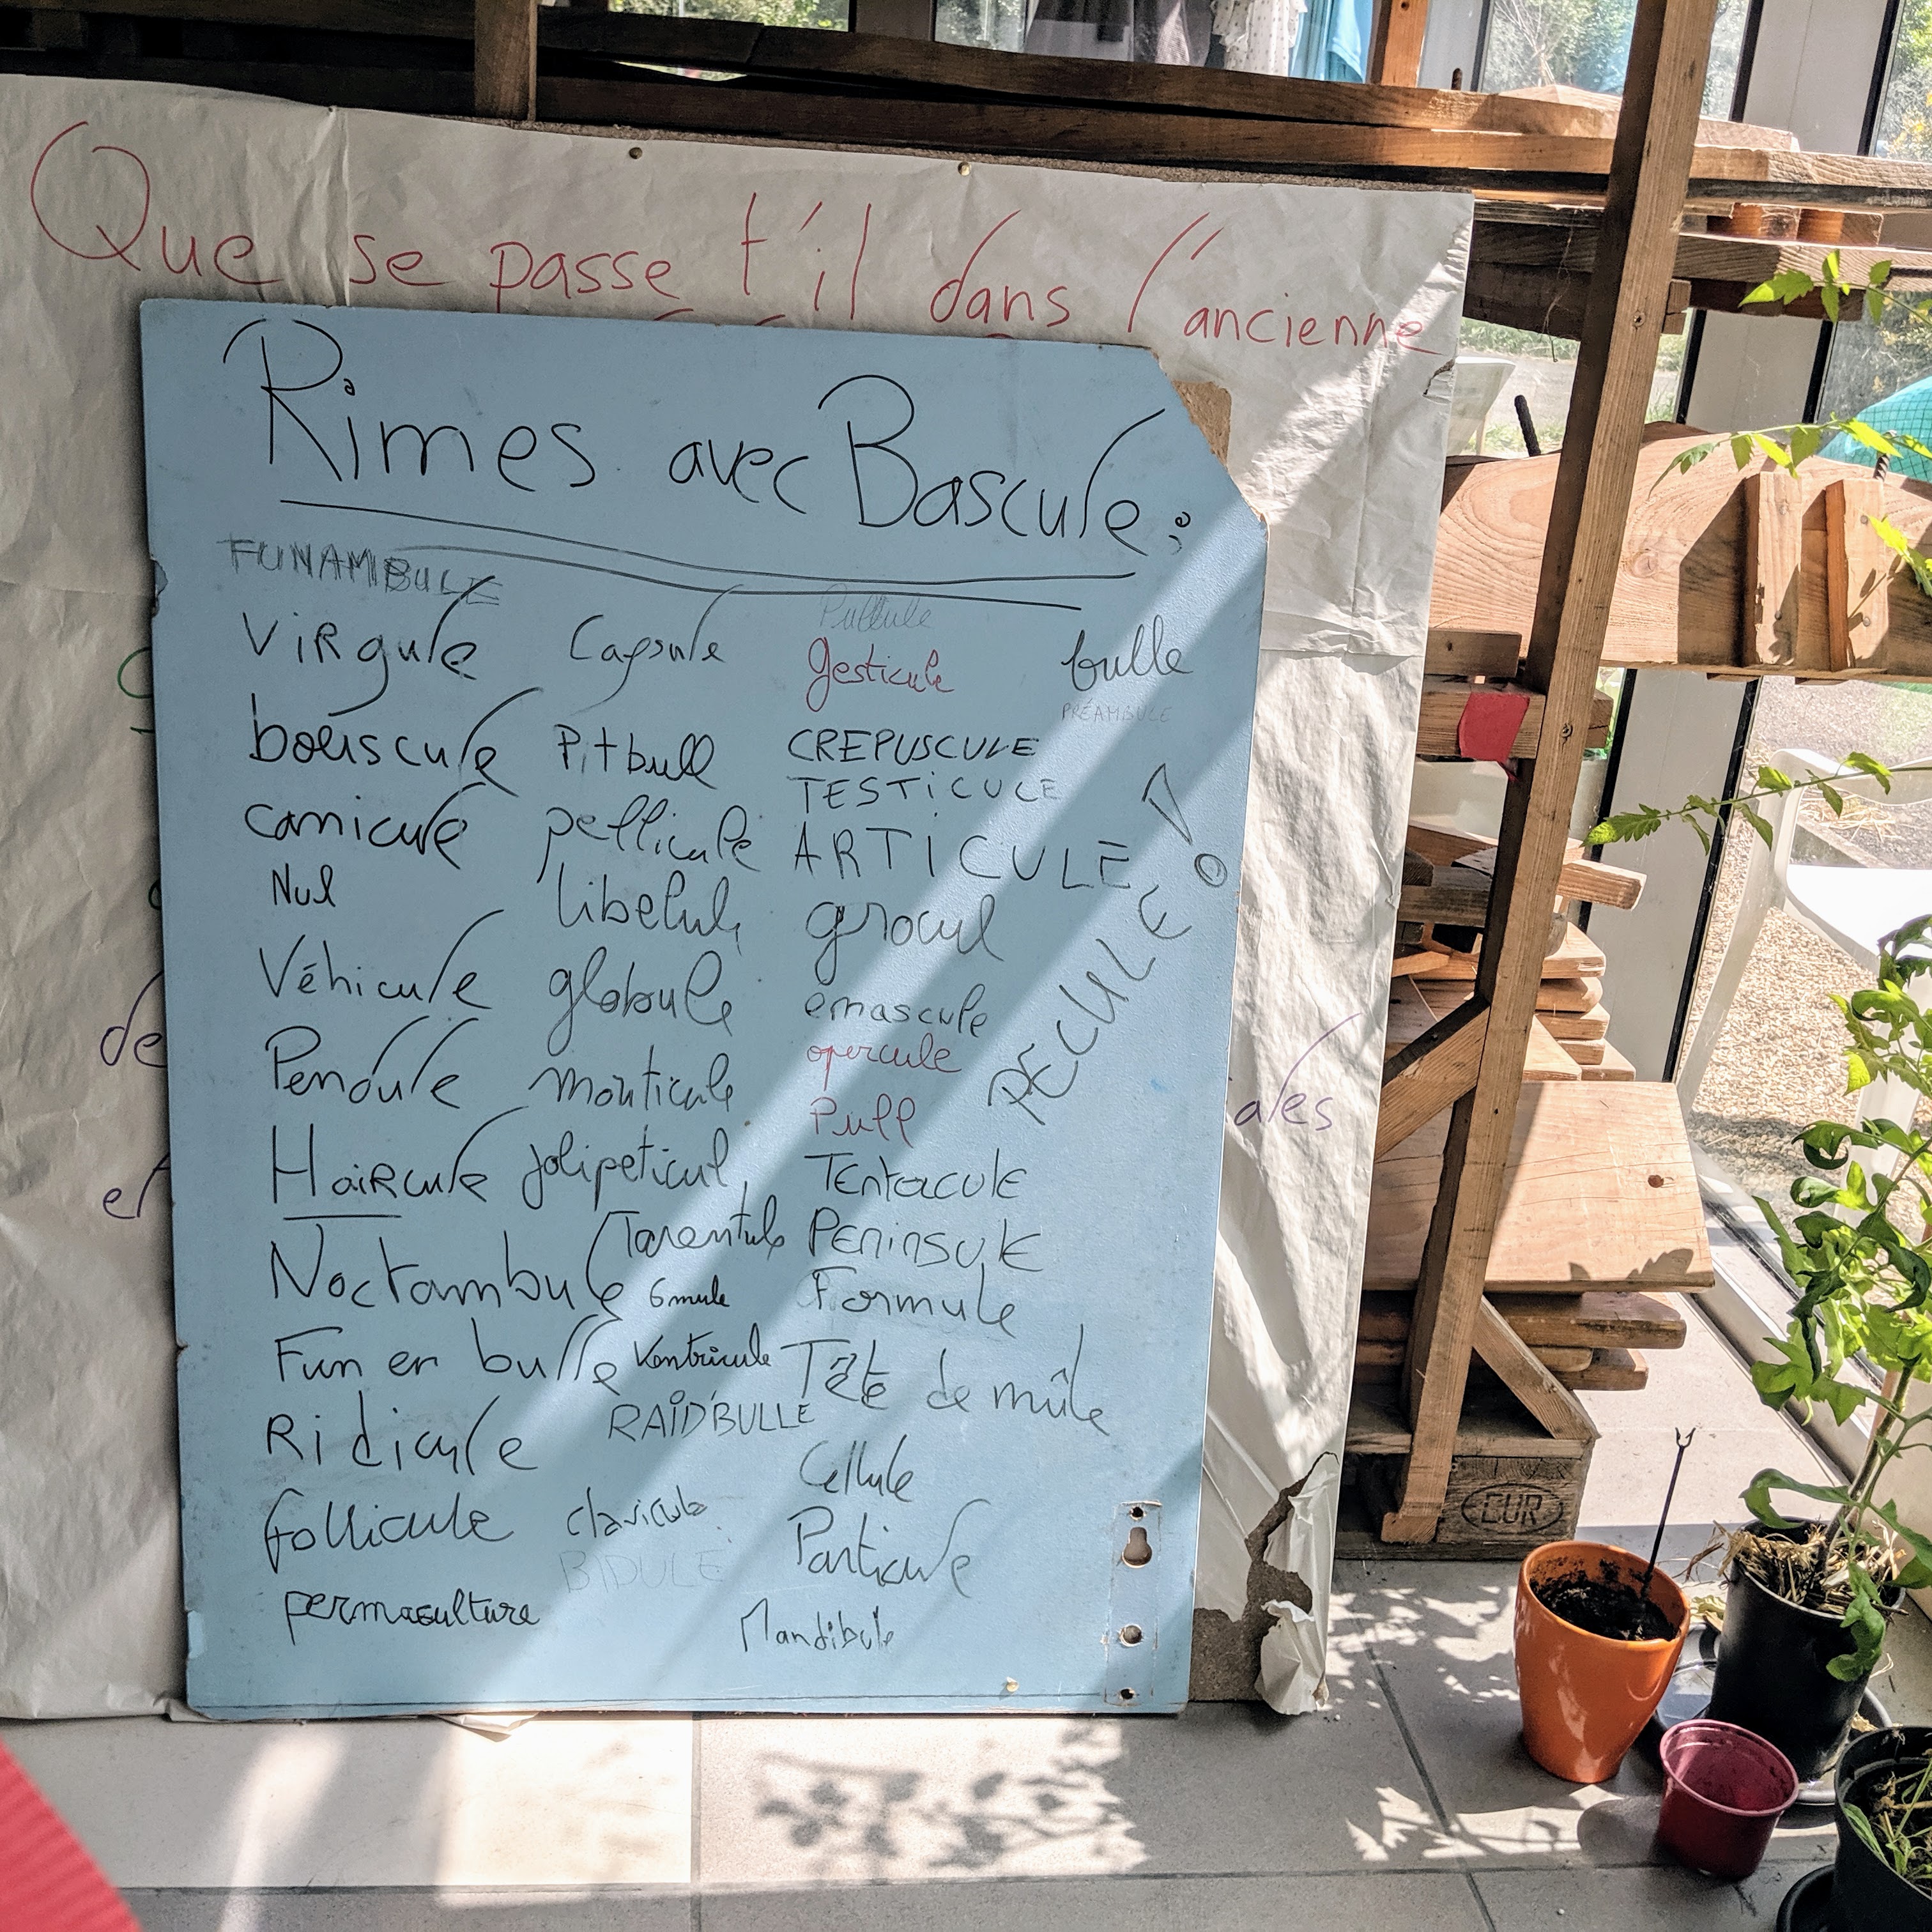 Que se passe t'il dans l'ancienne
Rimes avec Bascule :
FUNAMBULE
Virgule
bouiscule
canicule
Nul
Véhicule
Pendule
Haircule
Noctambule
Fun en bulle
Ridicule
follicule
permaculture
Capsule
Pitbull
pellicule
libelule
globule
monticule
jolipeticul
Tarentule
6mule
Ventricule
RAÏD'BULLE
clavicule
BIDULE
Pullule
gesticule
CREPUSCULE
TESTICULE
ARTICULE
grocul
emascule
opercule
Pull
Tentacule
PENINSULE
Formule
Tête de mûle
Cellule
Particule
Mandibule
bulle
PRÉAMBULE
PÉCULE !
de
et
ales
CUR